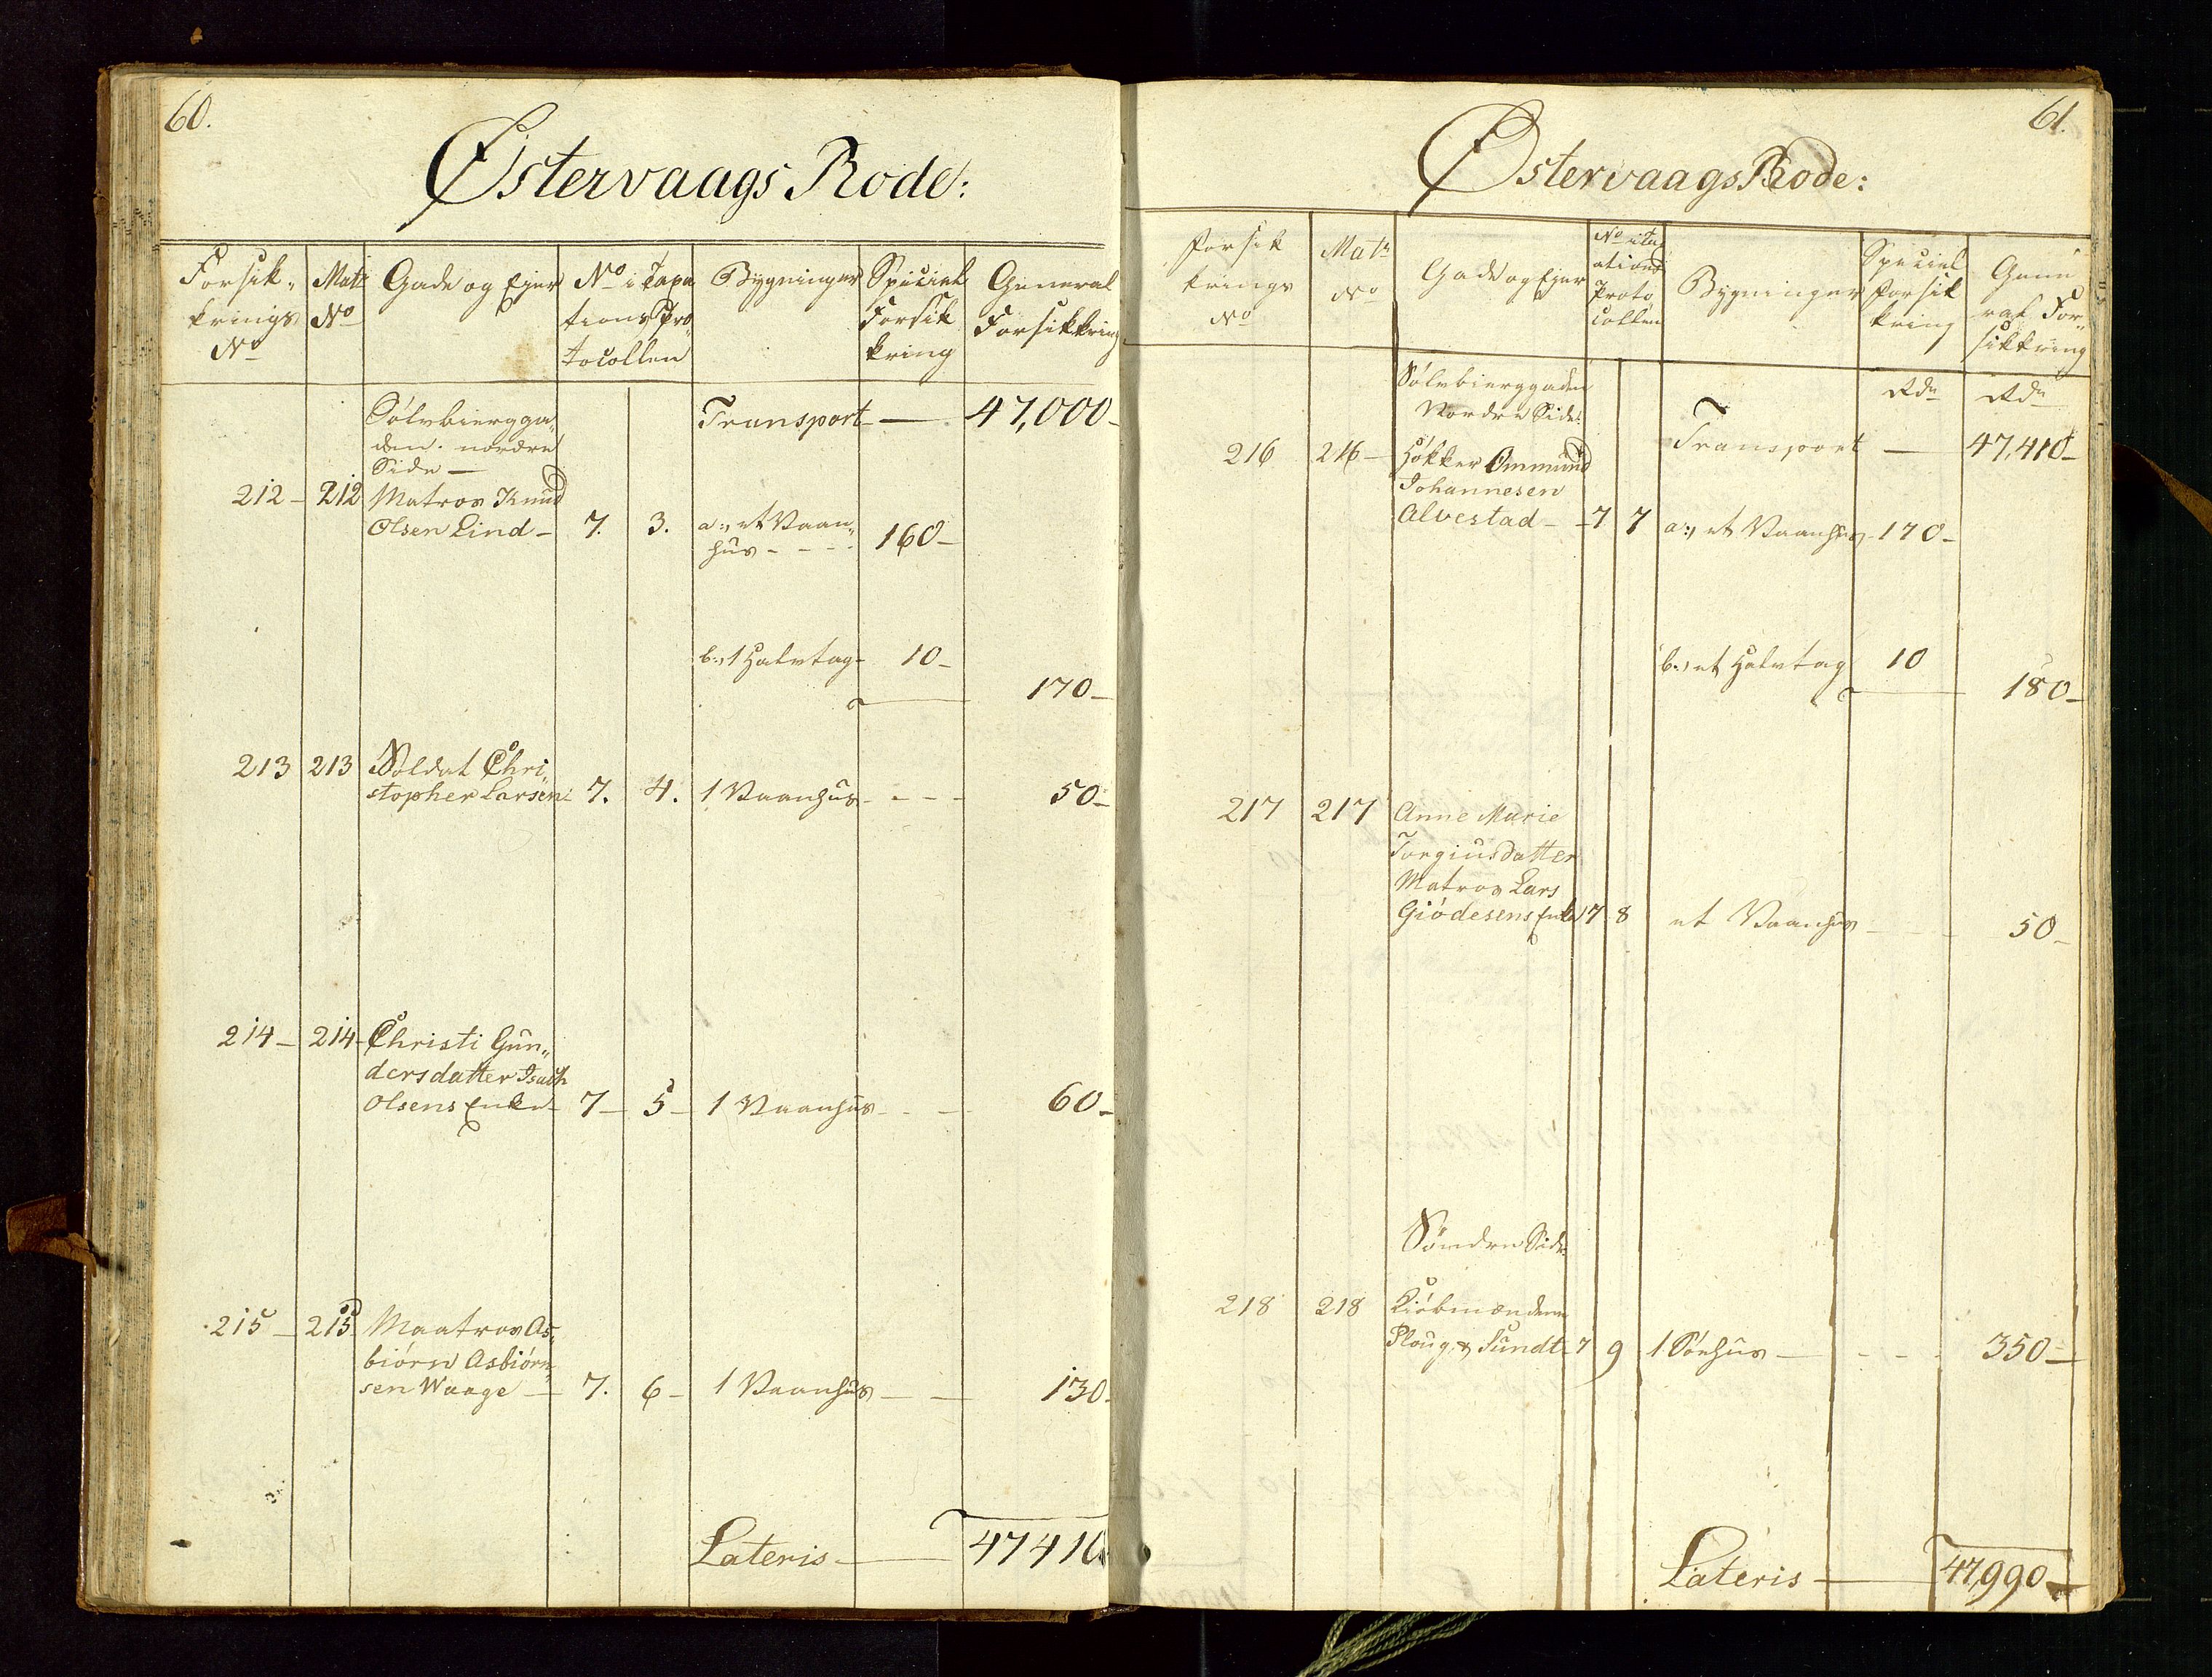 60.
Østervaags Rode:
Forsik-
krings
No
Matr
No
Gade og Ejer
No i Taxa
tions Pro
tocollen
Bygninger
Speciel
Forsik
kring
General
Forsikkring
Sølvbiergga„
den. nordre
Side —
Transport — 47,000
212 — 212 Matros Knud
Olsen Lind — 7. 3. a:, et Vaan„
hus - - - - 160 —
b:, 1 Halvtag — 10 —
170 —
213 213 Soldat Chri„
stopher Larsen 7. 4. 1 Vaanhus - - - 50 —
214 — 214 Christi Gun„
dersdatter Isach
Olsens Enke — 7 — 5 — 1 Vaanhus - - - 60 —
215 — 215 Maatros As„
biörn Asbiörn„
sen Waage — 7. 6 — 1 Vaanhus — — 130
Lateris — 47410
61.
Østervaags Rode:
Forsik
krings
No
Matr
No
Gade og Ejer
No i ta
ations
Proto
collen
Bygninger
Speciel
Forsik
kring
Gene
ral For„
sikkring
Sølvbierggaden
Nordre Side:
Rdr Rdr
Transport — 47,410 —
216 216 — Høkker Ommund
Johannesen
Alvestad — 7 7 a:, et Vaanhus 170 —
b:, et Halvtag 10
180 —
217 217 Anne Marie
Torgiusdatter
Matros Lars
Giödesens Enke 7 8 et Vaanhus - - - 50 —
Söndre Side
218 218 Kiöbmændene
Ploug & Sundt 7 9 1 Söehus — - - - 350 —
Lateris — 47,990 —